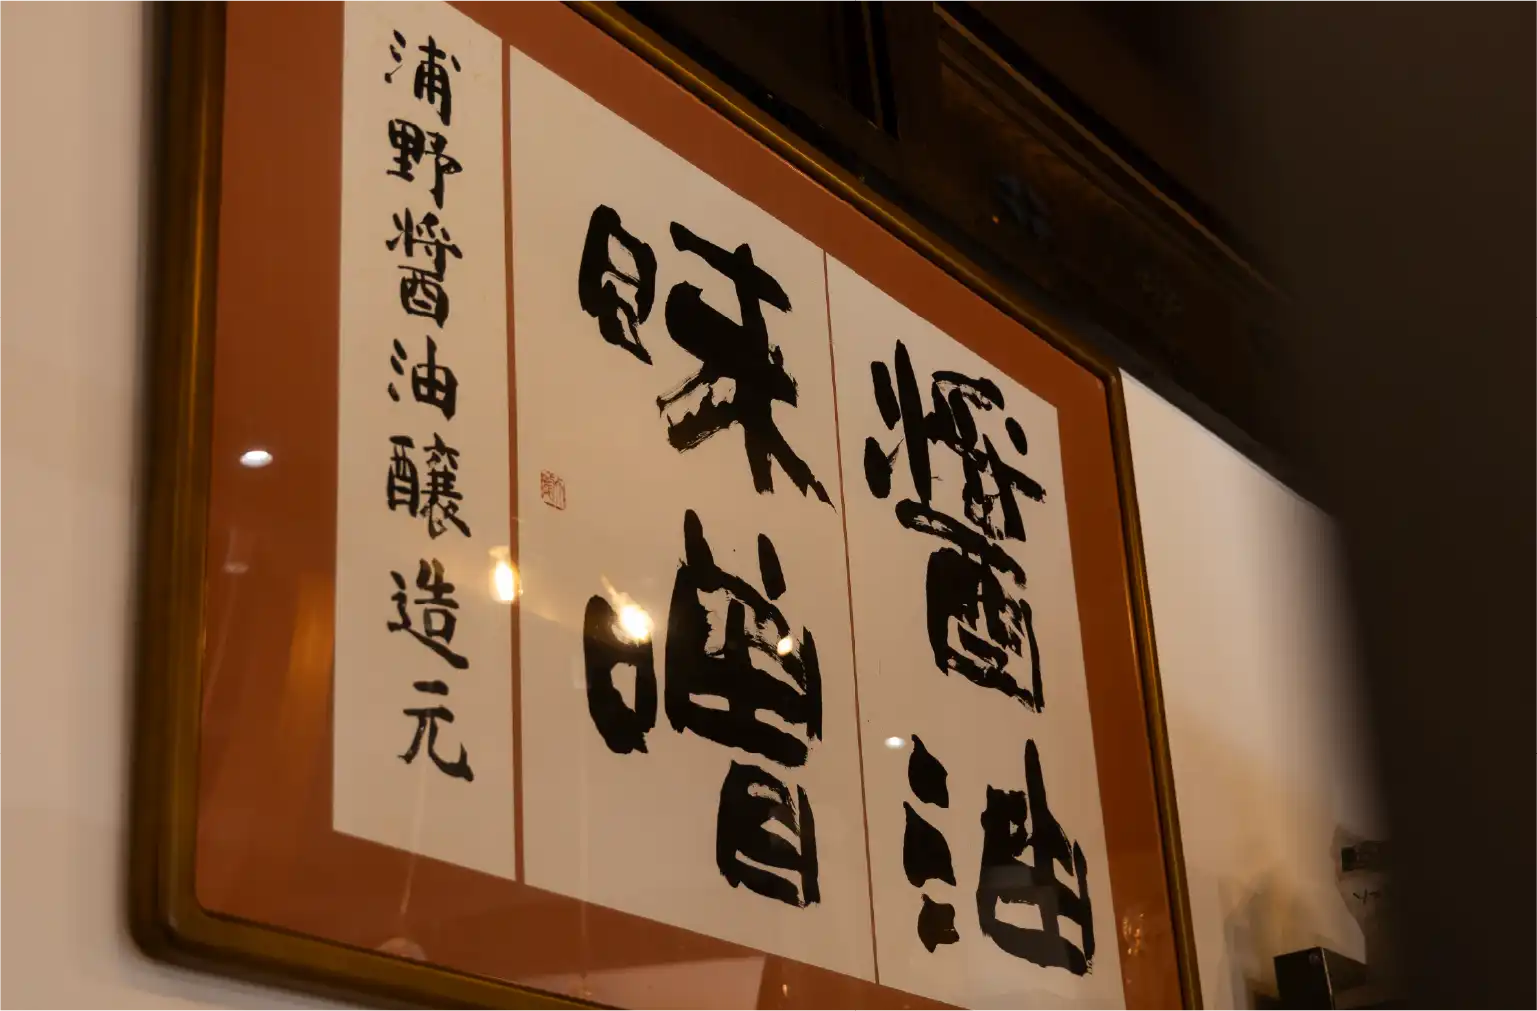 醤油
味噌
浦野醤油醸造元